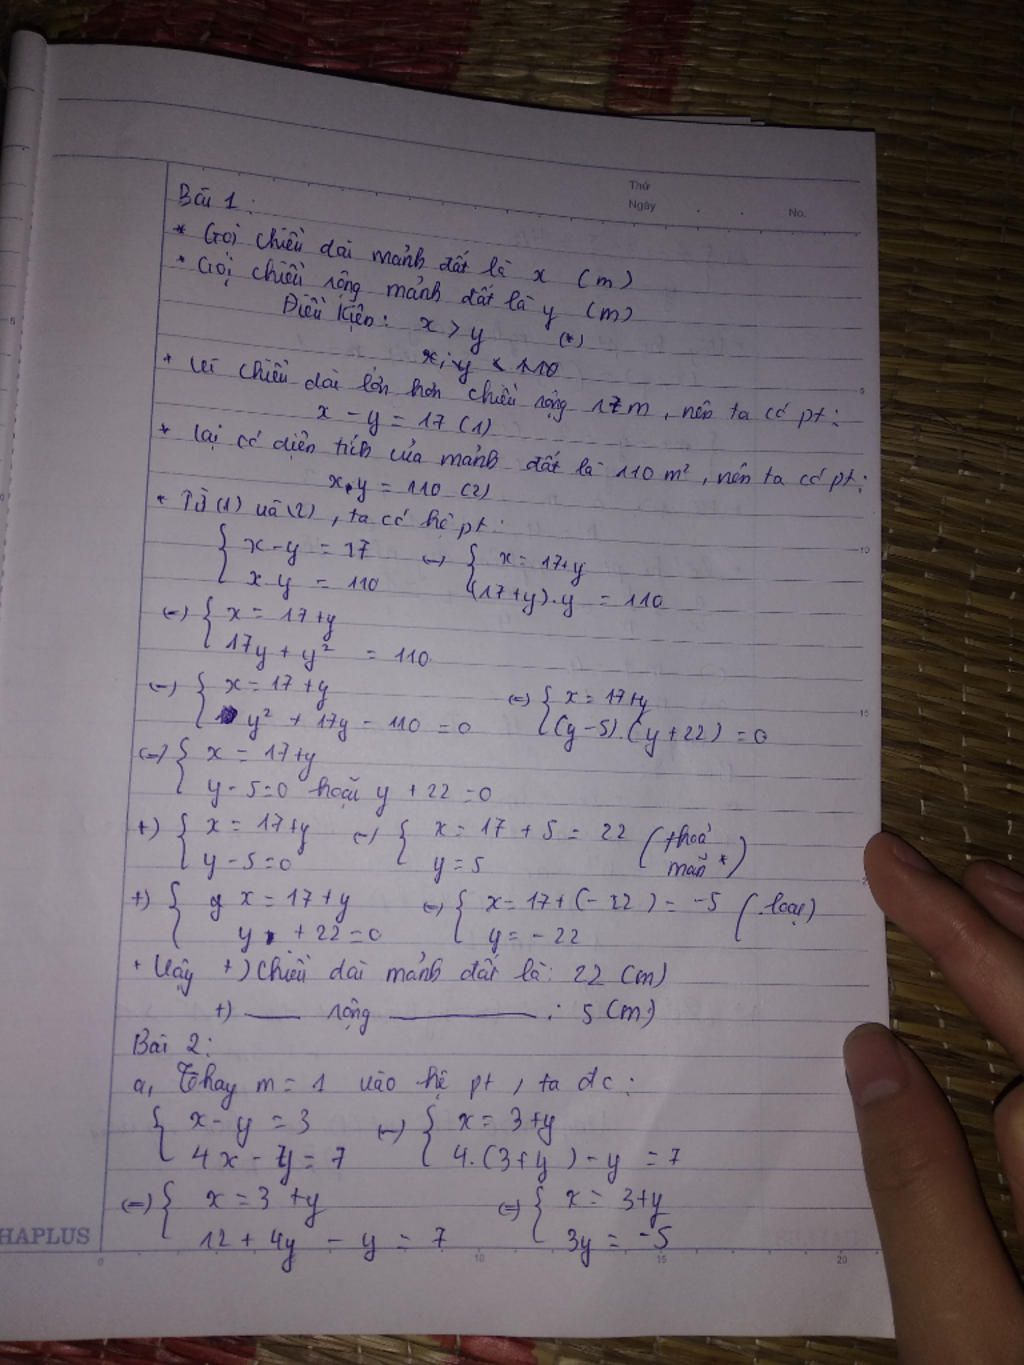 Thứ
Ngày . . No.
Bài 1:
* Gọi chiều dài mảnh đất là x (m)
* Gọi chiều rộng mảnh đất là y (m)
Điều kiện: x > y (*)
x; y < 110
+ Vì chiều dài lớn hơn chiều rộng 17m, nên ta có pt:
x - y = 17 (1)
* Lại có diện tích của mảnh đất là 110 m², nên ta có pt:
x.y = 110 (2)
+ Từ (1) và (2), ta có hệ pt:
{ x-y = 17 (=) { x = 17+y
x.y = 110 (17+y).y = 110
(=) { x = 17+y
17y + y² = 110
(=) { x = 17+y (=) { x = 17+y
y² + 17y - 110 = 0 (y-5).(y+22) = 0
(=) { x = 17+y
y - 5=0 hoặc y + 22 =0
+) { x = 17+y (=) { x = 17 + 5 = 22 (thoả
y - 5=0 y = 5 mãn *)
+) { x = 17+y (=) { x = 17+(-22) = -5 (loại)
y + 22=0 y = -22
+ Vậy +) Chiều dài mảnh đất là: 22 (m)
+) —— rộng ———— : 5 (m)
Bài 2:
a, Thay m = 1 vào hệ pt, ta đc:
{ x - y = 3 (=) { x = 3+y
4x - y = 7 4.(3+y) - y = 7
(=) { x = 3 + y (=) { x = 3+y
12 + 4y - y = 7 3y = -5
HAPLUS
0 10 15 20
5
10
15